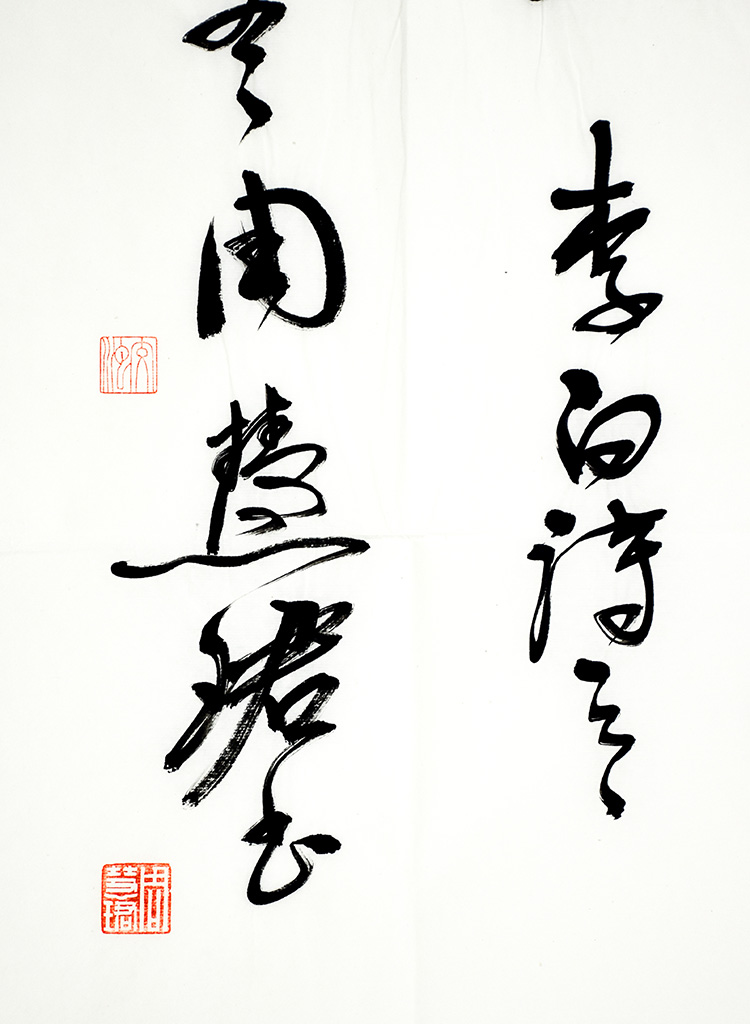 李白詩
周慧珺书
周慧珺